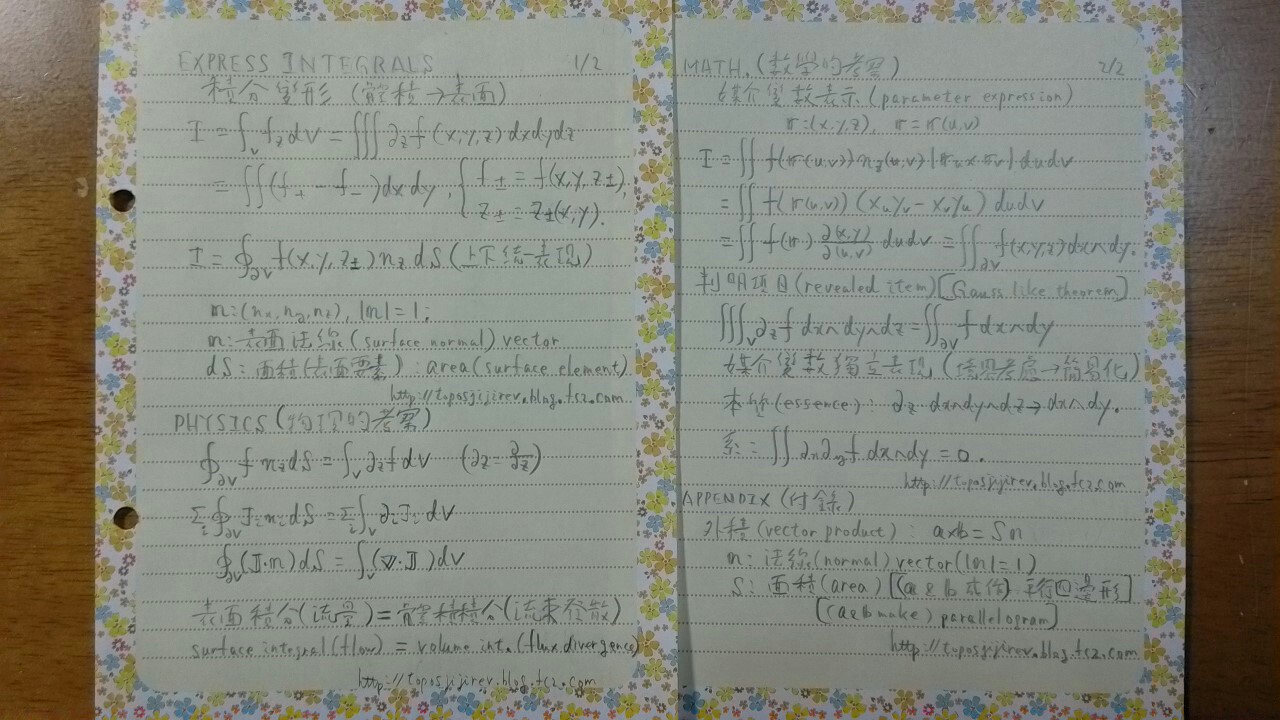 EXPRESS INTEGRALS 1/2
積分變形 (體積→表面)
I = ∫_V f_z dV = ∭ ∂_z f (x,y,z) dxdydz
= ∬(f₊ − f₋)dxdy, { f± = f(x,y,z±),
z± = z±(x,y).
I = ∮_∂V f(x,y,z±) n_z dS (上下統一表現)
n:(n_x,n_y,n_z), |n|=1;
n: 表面法線(surface normal) vector
dS: 面積(表面要素): area(surface element)
http://toposjijirev.blog.fc2.com
PHYSICS(物理的考察)
∮_∂V f n_z dS = ∫_V ∂_z f dV (∂_z = ∂/∂z)
Σ_i ∮_∂V J_i n_i dS = Σ_i ∫_V ∂_i J_i dV
∮_∂V (J·n) dS = ∫_V (∇·J) dV
表面積分(流量) = 體積積分(流束發散)
surface integral (flow) = volume int. (flux divergence)
http://toposjijirev.blog.fc2.com
MATH. (數學的考察) 2/2
媒介變數表示 (parameter expression)
r:(x,y,z), r = r(u,v)
I = ∬ f(r(u,v)) n_z(u,v) |r_u × r_v| dudv
= ∬ f(r(u,v)) (x_u y_v − x_v y_u) dudv
= ∬ f(r) ∂(x,y)/∂(u,v) dudv = ∬_∂V f(x,y,z) dx∧dy.
判明項目(revealed item) [Gauss like theorem]
∭_V ∂_z f dx∧dy∧dz = ∬_∂V f dx∧dy
媒介變數獨立表現 (境界考慮→簡易化)
本質(essence): ∂_z dx∧dy∧dz → dx∧dy.
系: ∬ ∂_x ∂_y f dx∧dy = 0.
http://toposjijirev.blog.fc2.com
APPENDIX (付錄)
外積(vector product): a×b = S n
n: 法線(normal) vector(|n|=1)
S: 面積(area) [(a & b 或作) 平行四邊形]
[(a&b make) parallelogram]
http://toposjijirev.blog.fc2.com